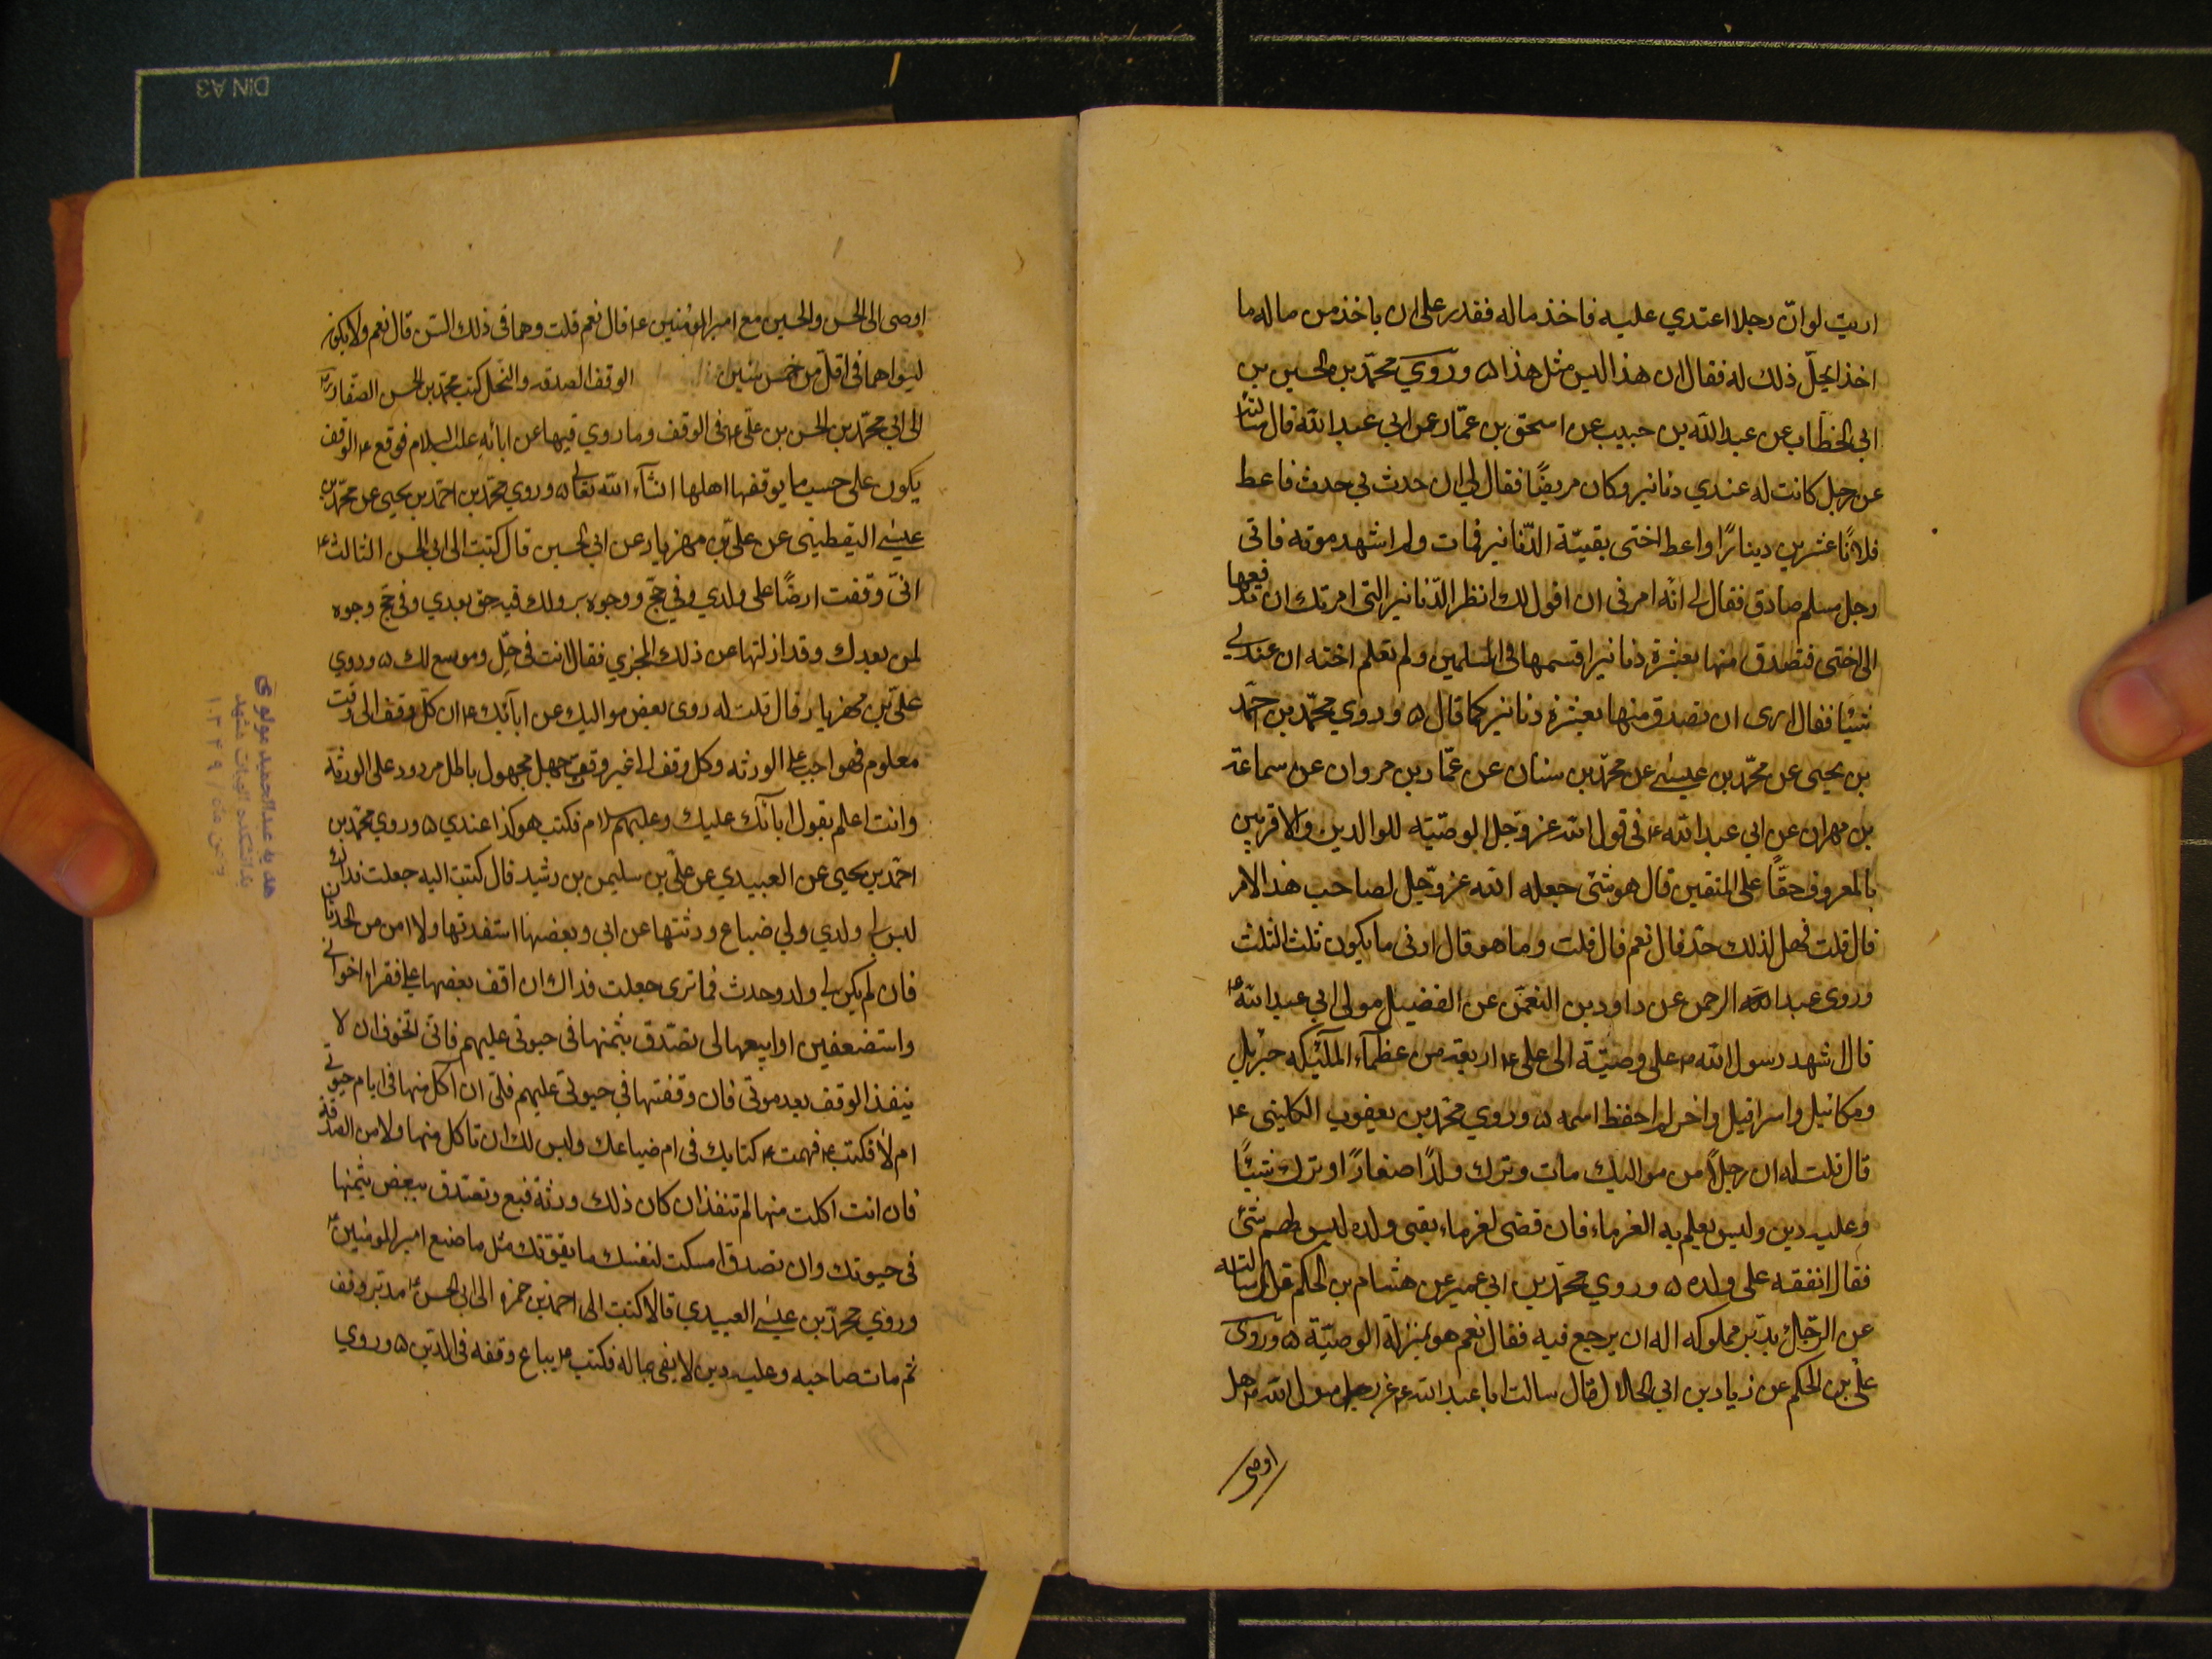 اريت لو ان رجلا اعتدي عليه فاخذ ماله فقدر على ان ياخذ من ماله ما
اخذ ايحلّ ذلك له فقال ان هذا ليس مثل هذا ه وروي محمّد بن الحسين بن
ابي الخطاب عن عبد الله بن حبيب عن اسحق بن عمّار عن ابي عبد الله قال سالته
عن رجل كانت له عندي دنانير وكان مريضًا فقال لي ان حدث بي حدث فاعط
فلانًا عشرين دينارًا واعط اختى بقيّة الدّنانير فمات ولم اشهد موته فاتى
رجل مسلم صادق فقال لى انّه امرنى ان اقول لك انظر الدّنانير التى امرتك ان تدفعها
الى اختى فتصدق منها بعشرة دنانير اقسمها فى المسلمين ولم تعلم اخته ان عندي
شيئا فقال ارى ان تصدق منها بعشرة دنانير كما قال ه وروي محمّد بن احمد
بن يحيى عن محمّد بن عيسى عن محمّد بن سنان عن عمّار بن مروان عن سماعة
بن مهران عن ابي عبد الله ع فى قول الله عز وجل الوصيّة للوالدين والاقربين
بالمعروف حقًّا على المتقين قال هو شئ جعله الله عز وجل لصاحب هذا الامر
قال قلت فهل لذلك حدّ قال نعم قال قلت وما هو قال ادنى ما يكون ثلث الثلث
وروى عبد الرحمن عن داود بن النعمن عن الفضيل مولى ابي عبد الله ع
قال اشهد رسول الله ص على وصيّته الى على ع اربعة من عظمآء الملئيكه جبريل
وميكائيل واسرافيل واخر لم احفظ اسمه ه وروي محمّد بن يعقوب الكلينى
قال قلت له ان رجلاً من مواليك مات وترك ولدًا صغارًا وترك شيئًا
وعليه دين وليس يعلم به الغرماء فان قضى لغرماء بقى ولده ليس لهم شئ
فقال انفقه على ولده ه وروي محمّد بن ابي عمير عن هشام بن الحكم قال سالته
عن الرّجل يدبّر مملوكه اله ان يرجع فيه فقال نعم هو بمنزلة الوصيّة ه وروى
على بن الحكم عن زياد بن ابي الحلال قال سالت ابا عبد الله ع عن رسول الله ص هل
اوصى
اوصى الى الحسن والحسين مع امير المؤمنين ع قال نعم قلت وهما فى ذلك السّن قال نعم ولا يكون
لسواهما فى اقلّ من خمس سنين الوقف الصدقه والنّحل كتب محمّد بن الحسن الصفّار
الى ابي محمّد بن الحسن بن على ع فى الوقف وما روي فيها عن ابائه عليه السلام فوقع ع الوقف
يكون على حسب ما يوقفها اهلها انشآء الله تعالى ه وروي محمّد بن احمد بن يحيى عن محمّد بن
عيسى اليقطينى عن على بن مهزيار عن ابي الحسين قال كتبت الى ابي الحسن الثالث ع
انّى وقفت ارضًا على ولدي وفي حجّ ووجوه بر ولك فيه حق بعدي وفى حجّ وجوه
لمن بعدك وقد ازلتها عن ذلك المجزي فقال انت فى حلّ وموسع لك ه وروي
على بن مهزيار قال قلت له روى بعض مواليك عن ابائك ع ان كل وقف الى وقت
معلوم فهو واجب على الورثه وكل وقف الى غير وقت جهل مجهول باطل مردود على الورثة
وانت اعلم بقول ابائك عليك وعليهم سلام فكتب هو كذا عندي ه وروي محمّد بن
احمد بن يحيى عن العبيدي عن على بن سليمن بن رشيد قال كتبت اليه جعلت فداك
ليس لى ولدي ولي ضياع ورثتها عن ابى وبعضها استفدتها ولا امن من الحدثان
فان لم يكن لى ولد وحدث فما ترى جعلت فداك ان اقف بعضها على فقراء اخوانى
واستضعفين او ابيعها لى تصدّق بثمنها فى حيوتى عليهم فانّى اتخوف ان لا
ينفذ الوقف بعد موتى فان وقفتها في حيوتي عليهم فلى ان اكل منها فى ايام حيوتى
ام لا فكتب ع فهمت كتابك فى ام ضياعك وليس لك ان تاكل منها ولا من الصدقة
فان انت اكلت منها لم تنفذ ان كان ذلك ورثة فبع وتصدق ببعض ثمنها
فى حيوتك وان تصدق امسكت لنفسك ما يقوتك مثل ما صنع امير المؤمنين ع
وروي محمّد بن عيسى العبيدي قال كتبت الى احمد بن حمزه الى ابي الحسن ع مدبّر وقف
ثم مات صاحبه وعليه دين لا يفى بماله فكتب ع يباع وقفه فى الدّين ه وروي
هديه عبدالحميد مولوى
بدانشكده الهيات مشهد